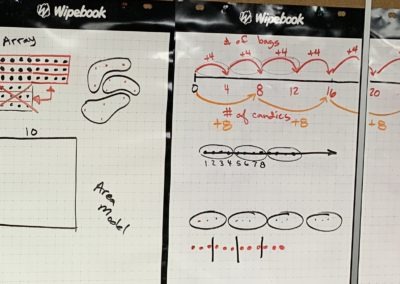 Wipebook
Array
10
Area
Model
Wipebook
# of bags
+4 +4 +4 +4 +4 +4
0 4 8 12 16 20
# of candies
+8 +8 +8
1 2 3 4 5 6 7 8